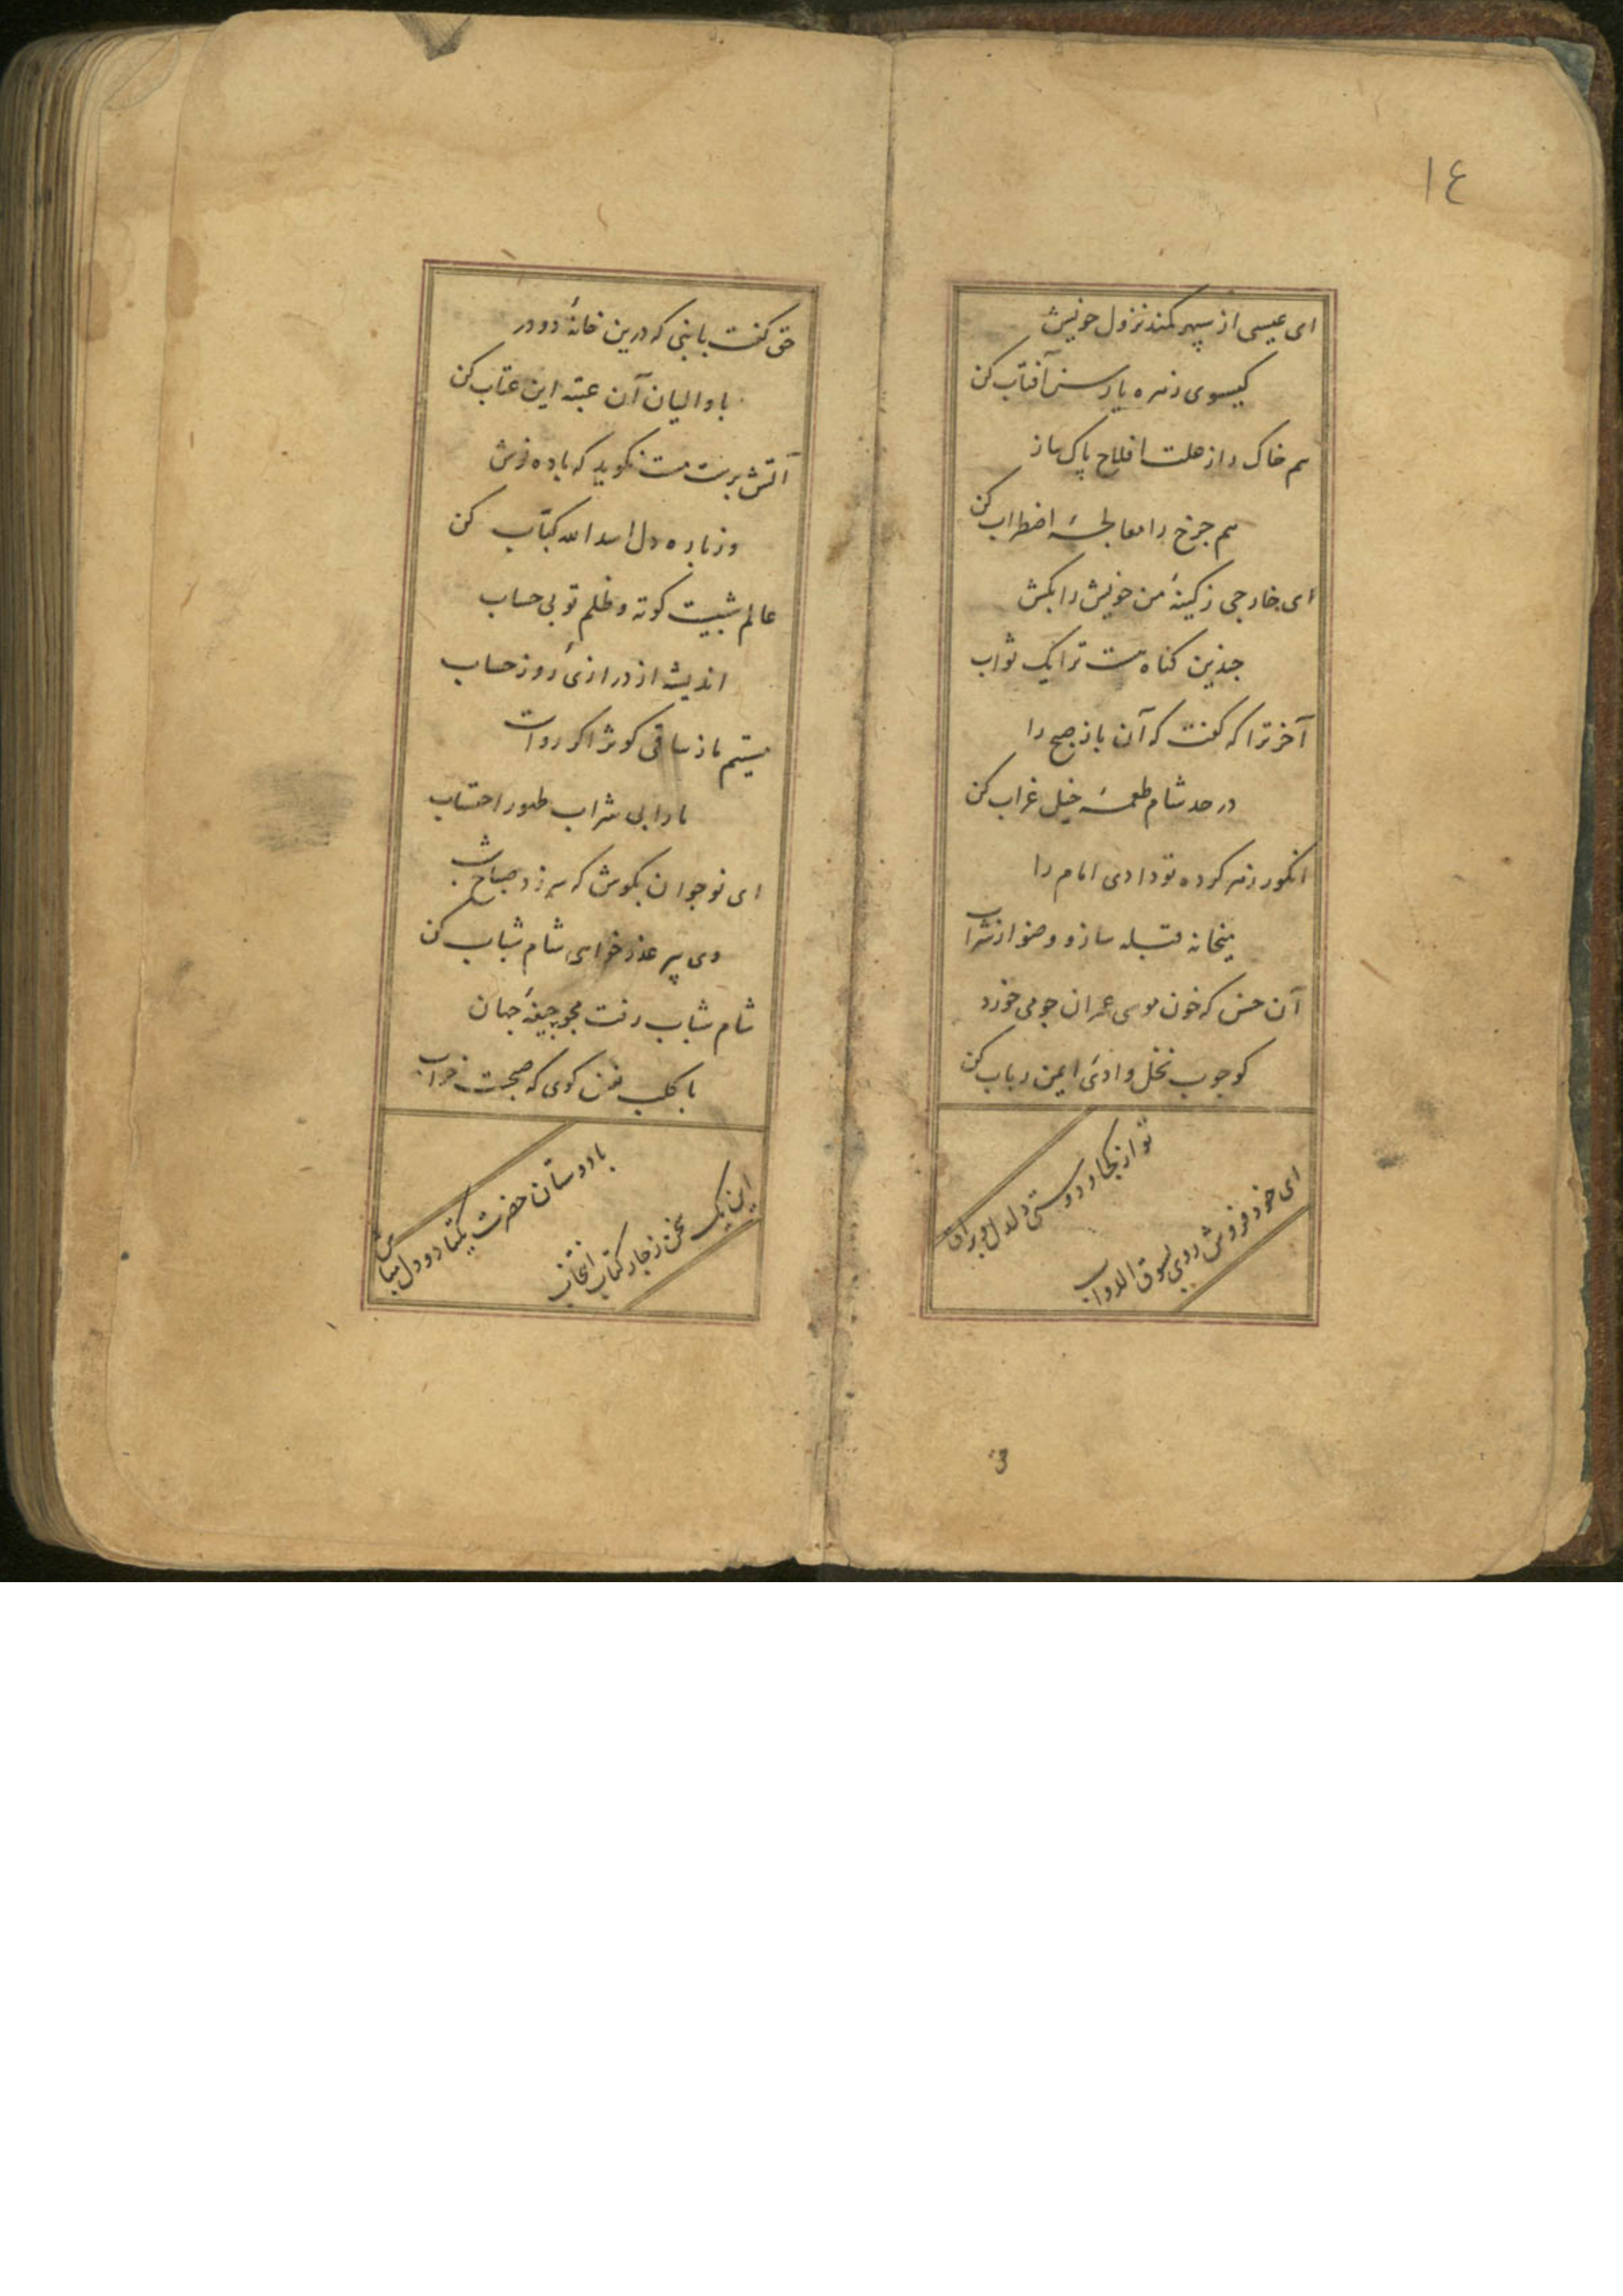 ١٤
ای عیسی از سپهر کمند نزول خویش
کیسوی زهره یا رسن آفتاب کن
هم خاک را از علت افلاح پاک ساز
هم چرخ را معالجهٔ اضطراب کن
ای خارجی ز کینهٔ من خویش را بکش
چندین کناه هست ترا یک ثواب
آخر ترا که کفت که آن باز صبح را
در حد شام طعمهٔ خیل غراب کن
انکور زهر کرده تو دادی امام را
میخانه قبله ساز و وضو از شراب
آن خس که خون موسی عمران چو می خورد
کو چوب نخل وادئ ایمن رباب کن
تو از کجا و دوستی دلدل و براق
ای خود فروش روی بسوق الدواب
حق کفت با نبی که درین خانهٔ دو در
با والیان آن عتبه این عتاب کن
آتش پرست مست نکوید که باده نوش
وز باره دل اسد الله کباب کن
عالم شبیست کوته و ظلم تو بی حساب
اندیشه از درازئ روز حساب
مستیم ما ز ساقی کوثر اکر رواست
ما را بی شراب طهور احتساب
ای نوجوان بکوش که سر زد صباح شیب
وی پیر عذرخواهی شام شباب کن
شام شباب رفت مجو جیفهٔ جهان
با کلب نفس کوی که صبحت خواب
با دوستان حضرت یکتا دو دل مباش
این یک سخن ز چار کتاب انتخاب